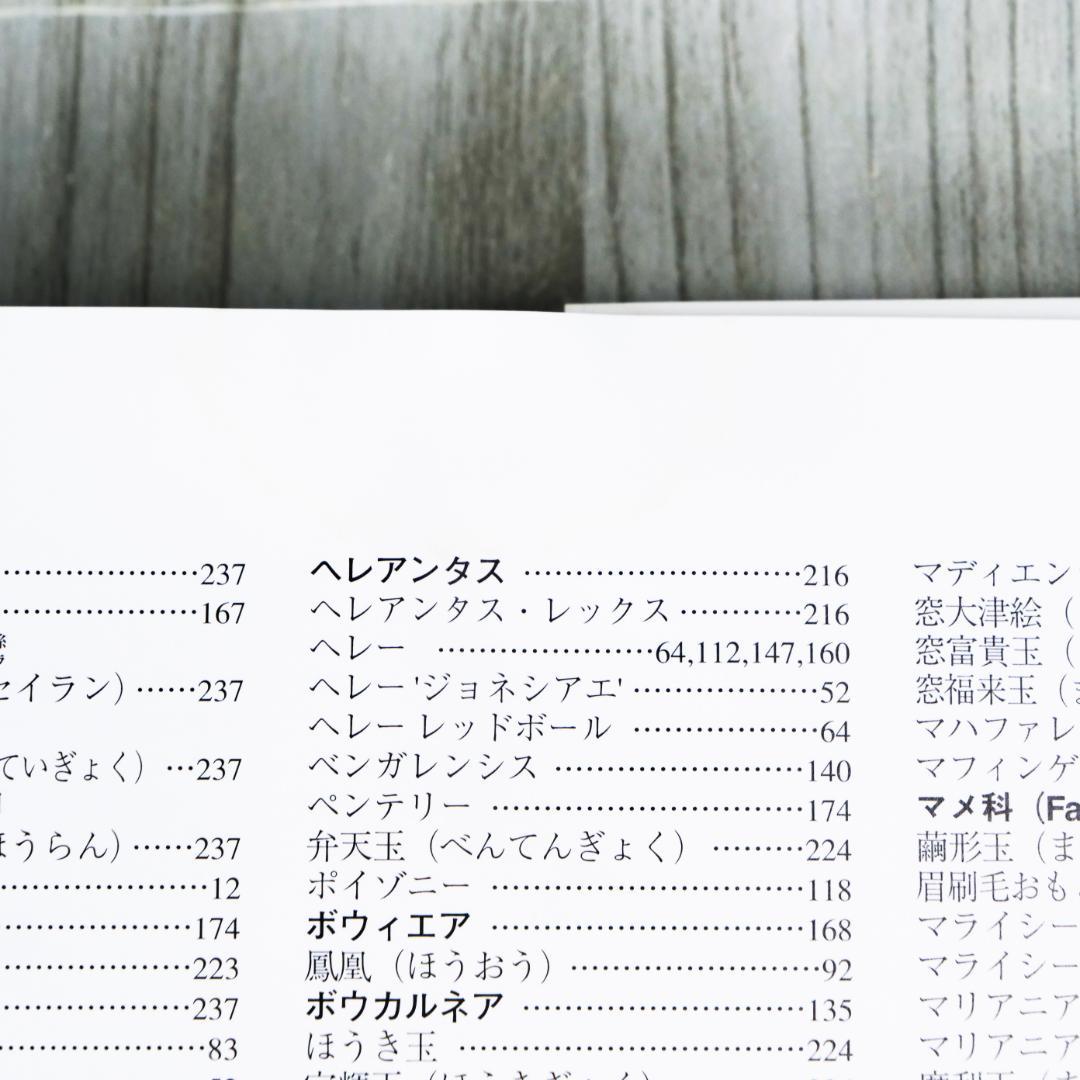 ………………237
………………167
セイラン）……237
ていぎょく）…237
ほうらん）……237
………………12
………………174
………………223
………………237
………………83
ヘレアンタス ………………216
ヘレアンタス・レックス…………216
ヘレー ………………64,112,147,160
ヘレー 'ジョネシアエ'………………52
ヘレー レッドボール ………………64
ベンガレンシス ………………140
ペンテリー ………………174
弁天玉（べんてんぎょく） ………224
ポイゾニー ………………118
ボウィエア ………………168
鳳凰（ほうおう）………………92
ボウカルネア ………………135
ほうき玉 ………………224
マディエン
窓大津絵（
窓富貴玉（
窓福来玉（ま
マハファレ
マフィンゲ
マメ科（Fa
繭形玉（ま
眉刷毛おも
マライシー
マライシー
マリアニア
マリアニア